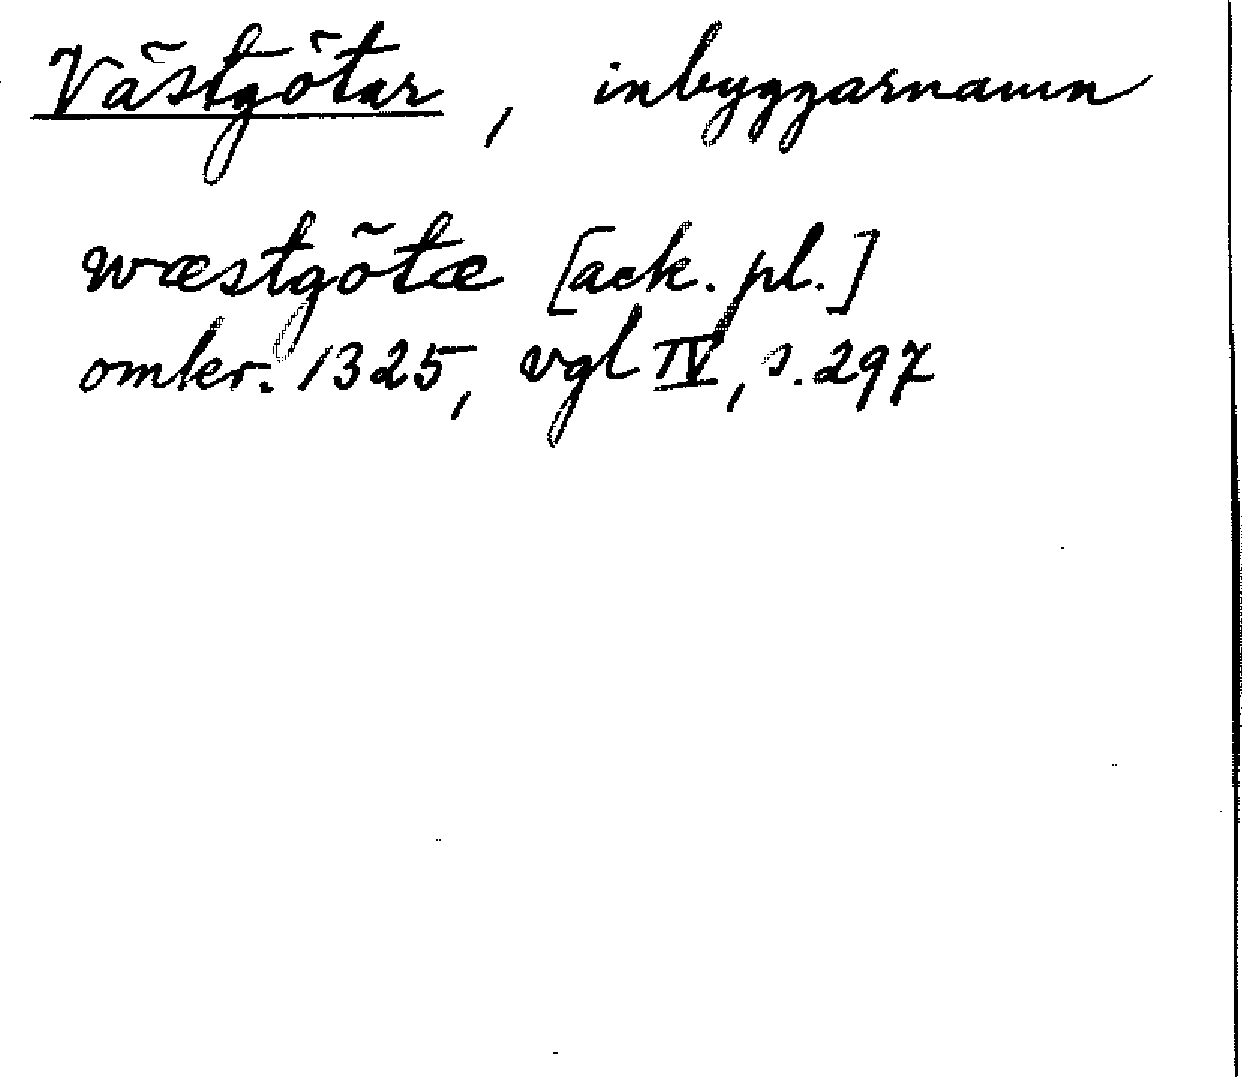 Västgötar, inbyggarnamn
wæstgötæ [ack. pl.]
omkr. 1325, vgl IV, s. 297